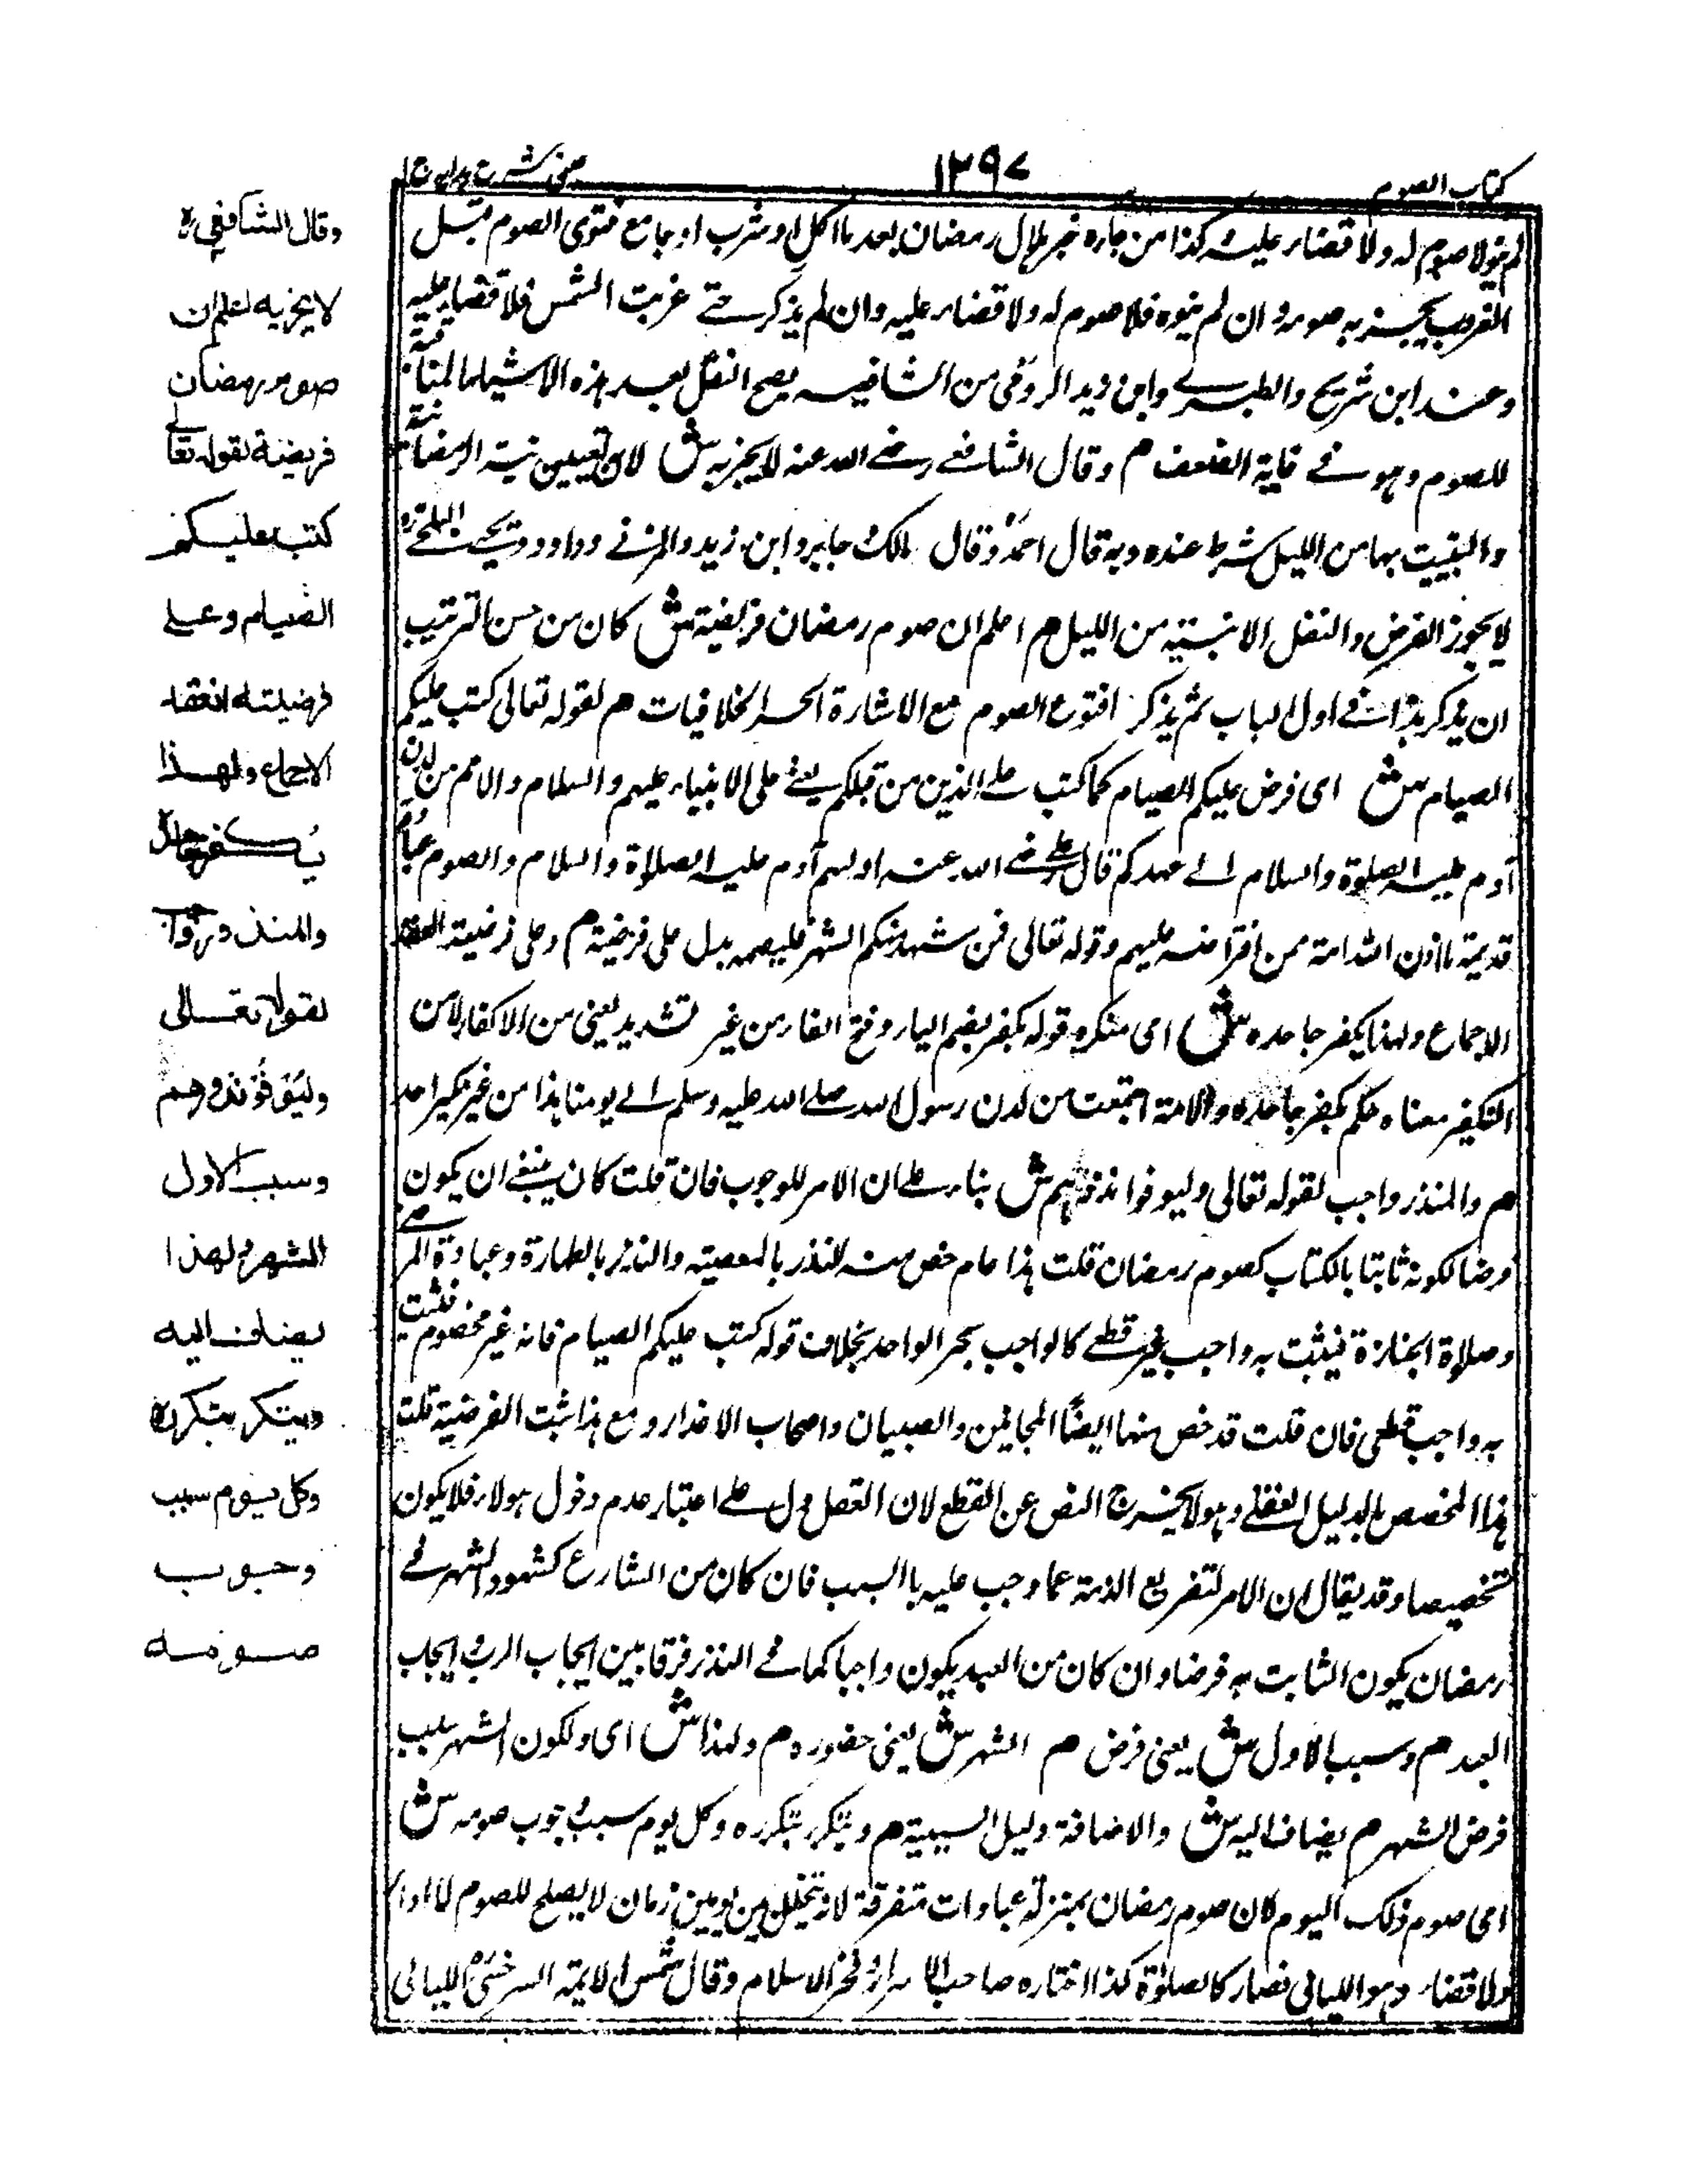 كتاب الصوم
١٢٩٧
عينى شرح هدايه ج ا
لم ينو لا صوم له ولا قضاء عليه كذا من جاره خبر هلال رمضان بعد ما اكل او شرب او جامع فنوى الصوم قبل
الغروب يجزيه صومه و ان لم ينوه فلا صوم له ولا قضاء عليه وان لم يذكر حتى غربت الشمس فلا قضاء عليه
وعند ابن شريح والطبرى وابى زيد المروزى من الشافعيه يصح النفل بعد هذه الاشياء المنافية
للصوم وهو فى غاية الضعف م وقال الشافعى رضى الله عنه لا يجزيه ش لان تعيين نية الرمضانية
والتبييت بها من الليل شرط عنده وبه قال احمد وقال مالك جابر وابن زيد والمزنى وداود ويحيى البلخى
لا يجوز الفرض والنفل الا بنية من الليل م اعلم ان صوم رمضان فريضة ش كان من حسن الترتيب
ان يذكر هذا فى اول الباب ثم يذكر انواع الصوم مع الاشارة الى الخلافيات م لقوله تعالى كتب عليكم
الصيام ش اى فرض عليكم الصيام كما كتب على الذين من قبلكم يعنى على الانبياء عليهم والسلام والامم من لدن
آدم عليه الصلوة والسلام الى عهدكم قال على رضى الله عنه اولهم آدم عليه الصلاة والسلام والصوم عبادة
قديمة ما اذن الله امة من افتراضه عليهم وقوله تعالى فمن شهد منكم الشهر فليصمه يدل على فريضة م وعلى فرضيته انعقد
الاجماع ولهذا يكفر جاحده ش اى منكره قوله يكفر بضم الياء وفتح الفاء من غير تشديد يعنى من الاكفار لا من
التكفير معناه حكم بكفر جاحده والامة اجتمعت من لدن رسول الله صلى الله عليه وسلم الى يومنا هذا من غير نكير احد
م والمنذر واجب لقوله تعالى وليوفوا نذورهم ش بناء على ان الامر للوجوب فان قلت كان ينبغى ان يكون
فرضا لكونه ثابتا بالكتاب كصوم رمضان قلت هذا عام خص منه النذر بالمعصية والنذر بالطهارة وعبادة المرضى
وصلاة الجنازة فيثبت به واجب غير قطعى كالواجب بخبر الواحد بخلاف قوله كتب عليكم الصيام فانه غير مخصوص فثبت
به واجب قطعى فان قلت قد خص منها ايضًا المجانين والصبيان واصحاب الاعذار ومع هذا ثبت الفرضية قلت
هذا المخصص بالدليل العقلى وهو لا يخرج النص عن القطع لان العقل دل على اعتبار عدم دخول هولاء فلا يكون
تخصيصا وقد يقال ان الامر لتفريع الذمة عما وجب عليه بالسبب فان كان من الشارع كشهود الشهر فى
رمضان يكون الثابت به فرضا وان كان من العبد يكون واجبا كما فى النذر فرقا بين ايجاب الرب وايجاب
العبد م وسبب الاول ش يعنى فرض م الشهر ش يعنى حضوره م ولهذا ش اى ولكون الشهر سبب
فرض الشهر م يضاف اليه ش والاضافة دليل السببية م ويتكرر بتكرره وكل يوم سبب وجوب صومه ش
اى صوم ذلك اليوم كان صوم رمضان بمنزلة عبادات متفرقة لانه يتخلل بين يومين زمان لا يصلح للصوم لا اداء
ولا قضاء وهو الليالى فصار كالصلوة كذا اختاره صاحب الاسرار وفخر الاسلام وقال شمس الايمة السرخسى الليالى
وقال الشافعى ره
لا يجزيه اعلم ان
صوم رمضان
فريضة لقوله تعالى
كتب عليكم
الصيام وعلى
فرضيته انعقد
الاجماع ولهذا
يُكفر جاحده
والمنذور واجب
لقوله تعالى
وليُوفُوا نذورهم
وسبب الاول
الشهر ولهذا
يضاف اليه
ويتكرر بتكرره
وكل يوم سبب
وجوب
صومه